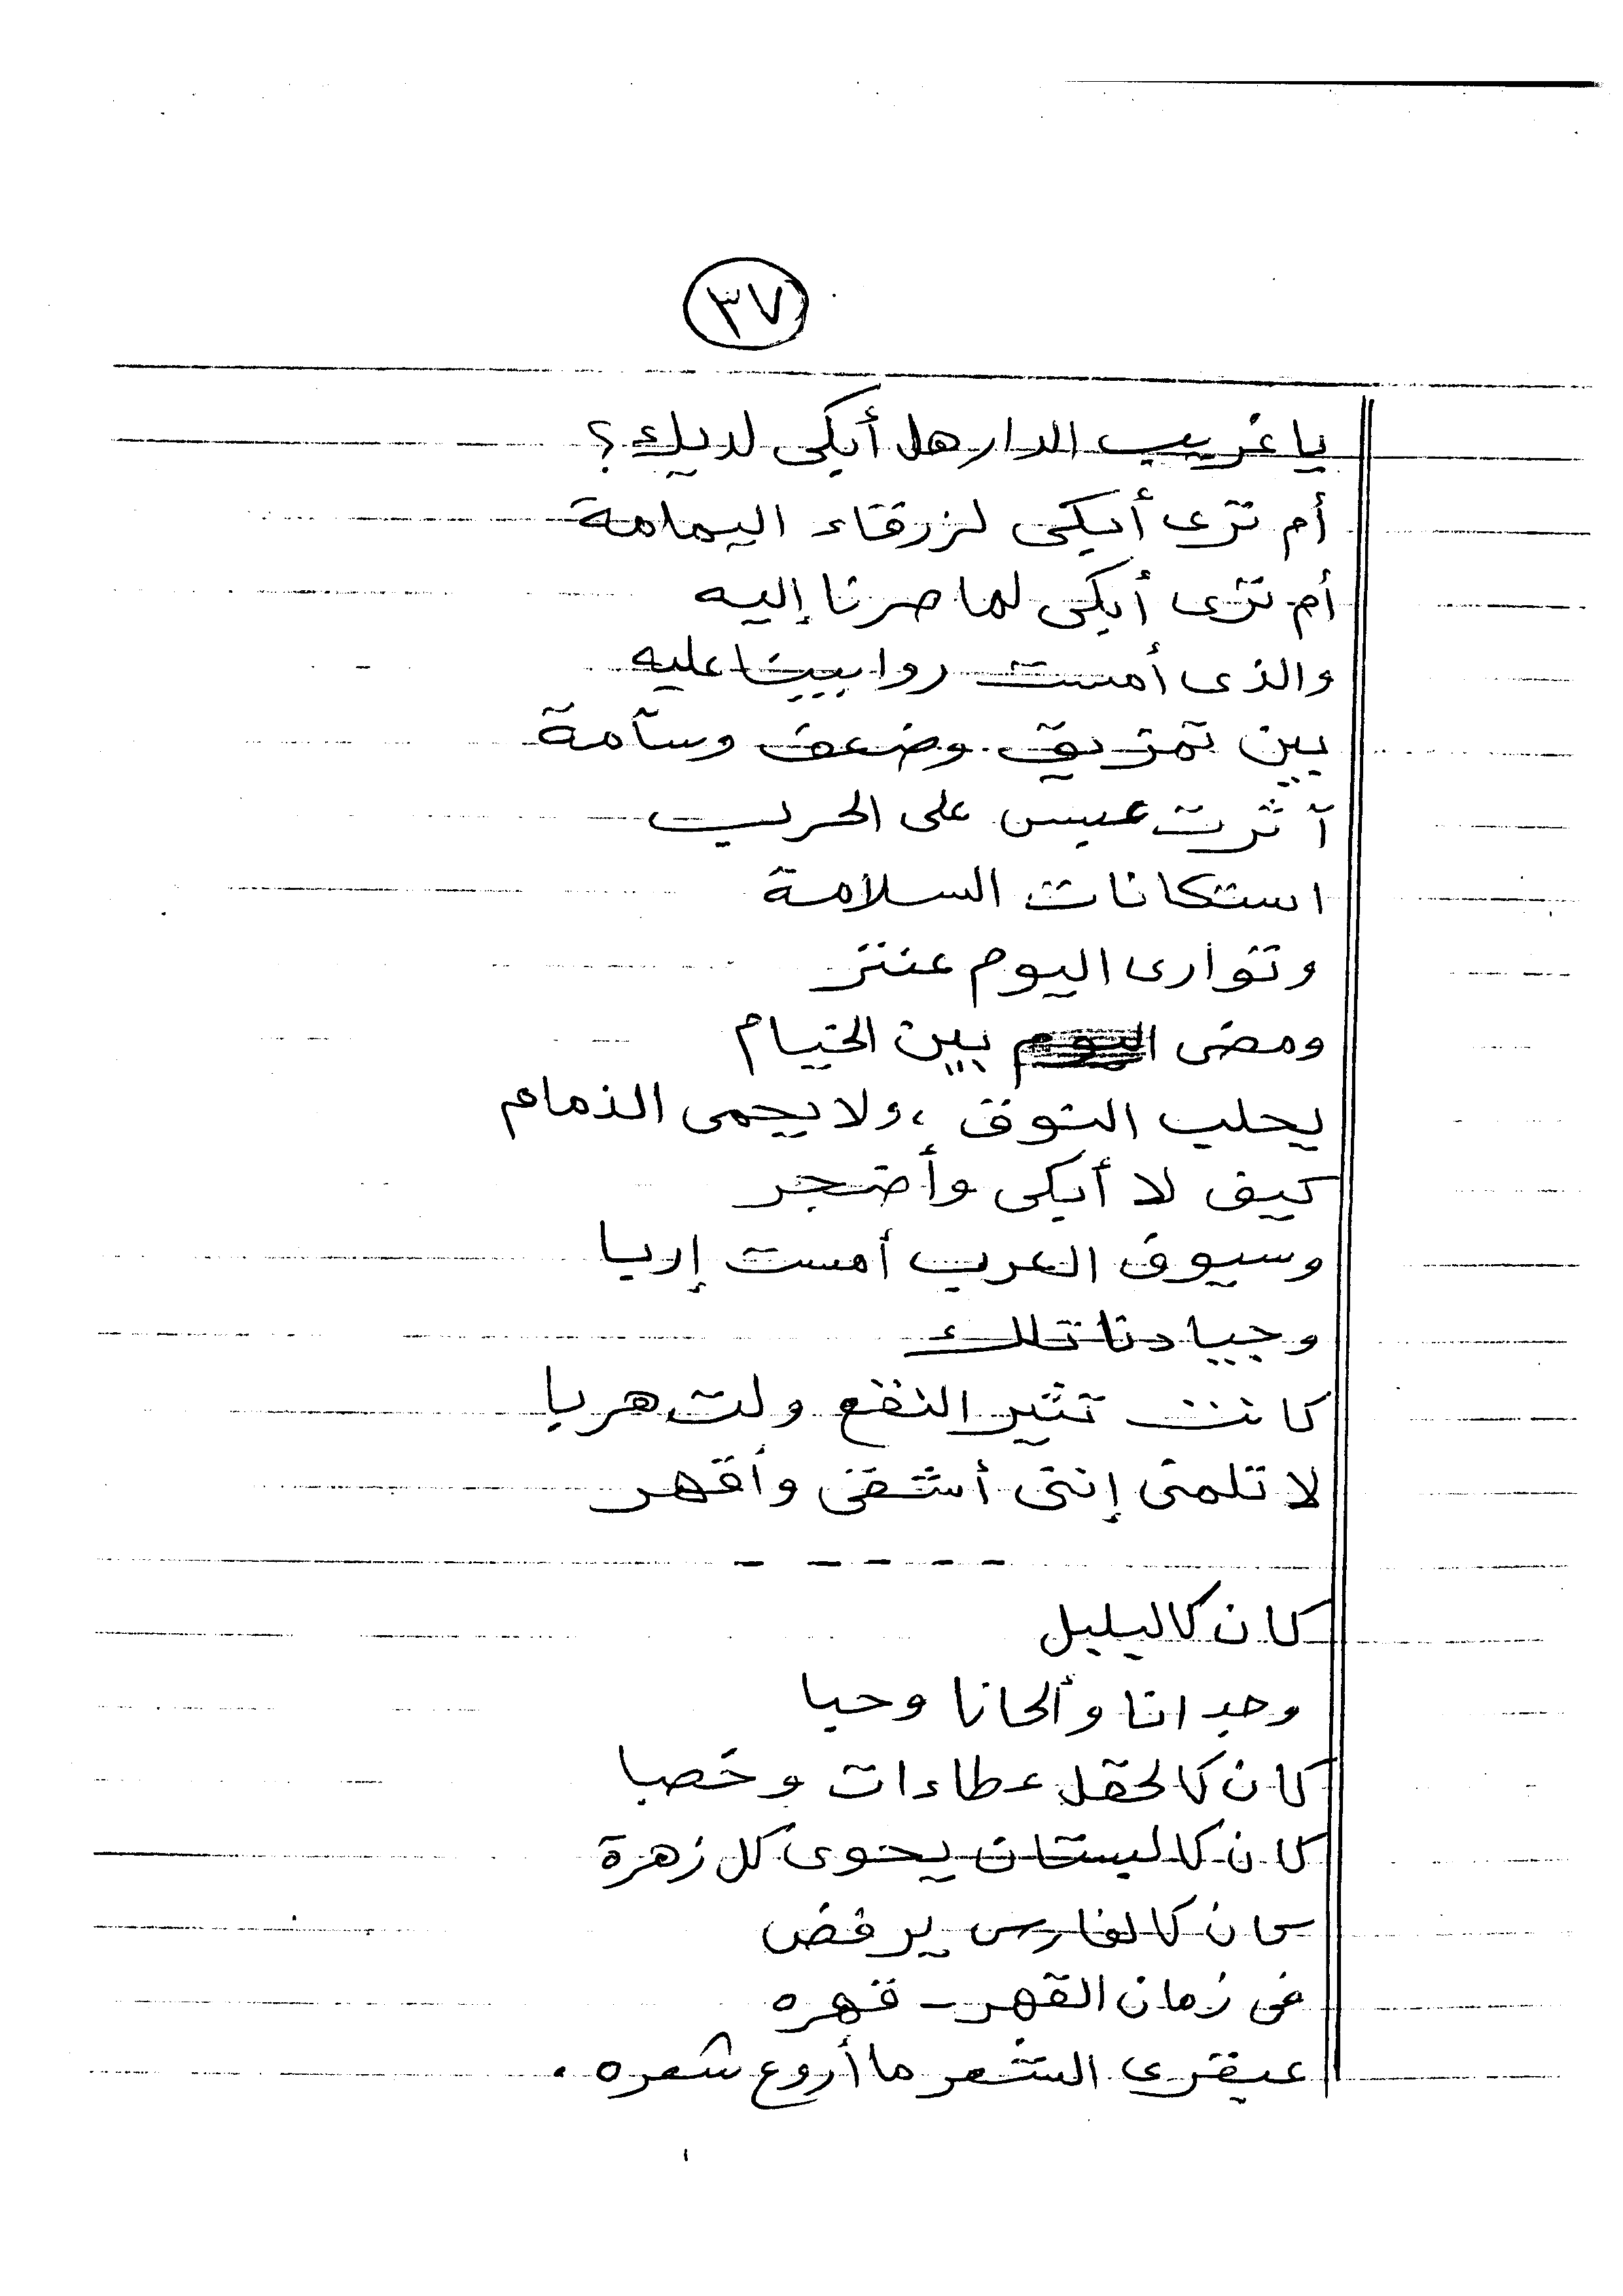 ٣٧
يا غريب الدار هل أبكى لديك ؟
أم ترى أبكى لزرقاء اليمامة
أم ترى أبكى لما صرنا إليه
والذى أمست روابينا عليه
بين تمزيق وضعف وسآمة
آثرت عبس على الحرب
استكانات السلامة
وتوارى اليوم عنتر
ومضى بين الخيام
يحلب النوق ، ولا يحمى الذمام
كيف لا أبكى وأضجر
وسيوف العرب أمست إربا
وجيادنا تلك
كانت تثير النقع ولت هربا
لا تلمنى إننى أشقى وأقهر
- - - - -
كان كالبلبل
وجدانا وألحانا وحبا
كان كالحقل عطاءات وخصبا
كان كالبستان يحوى كل زهرة
كان كالفارس يرفض
فى زمان القهر - قهره
عبقرى الشعر ما أروع شعره .